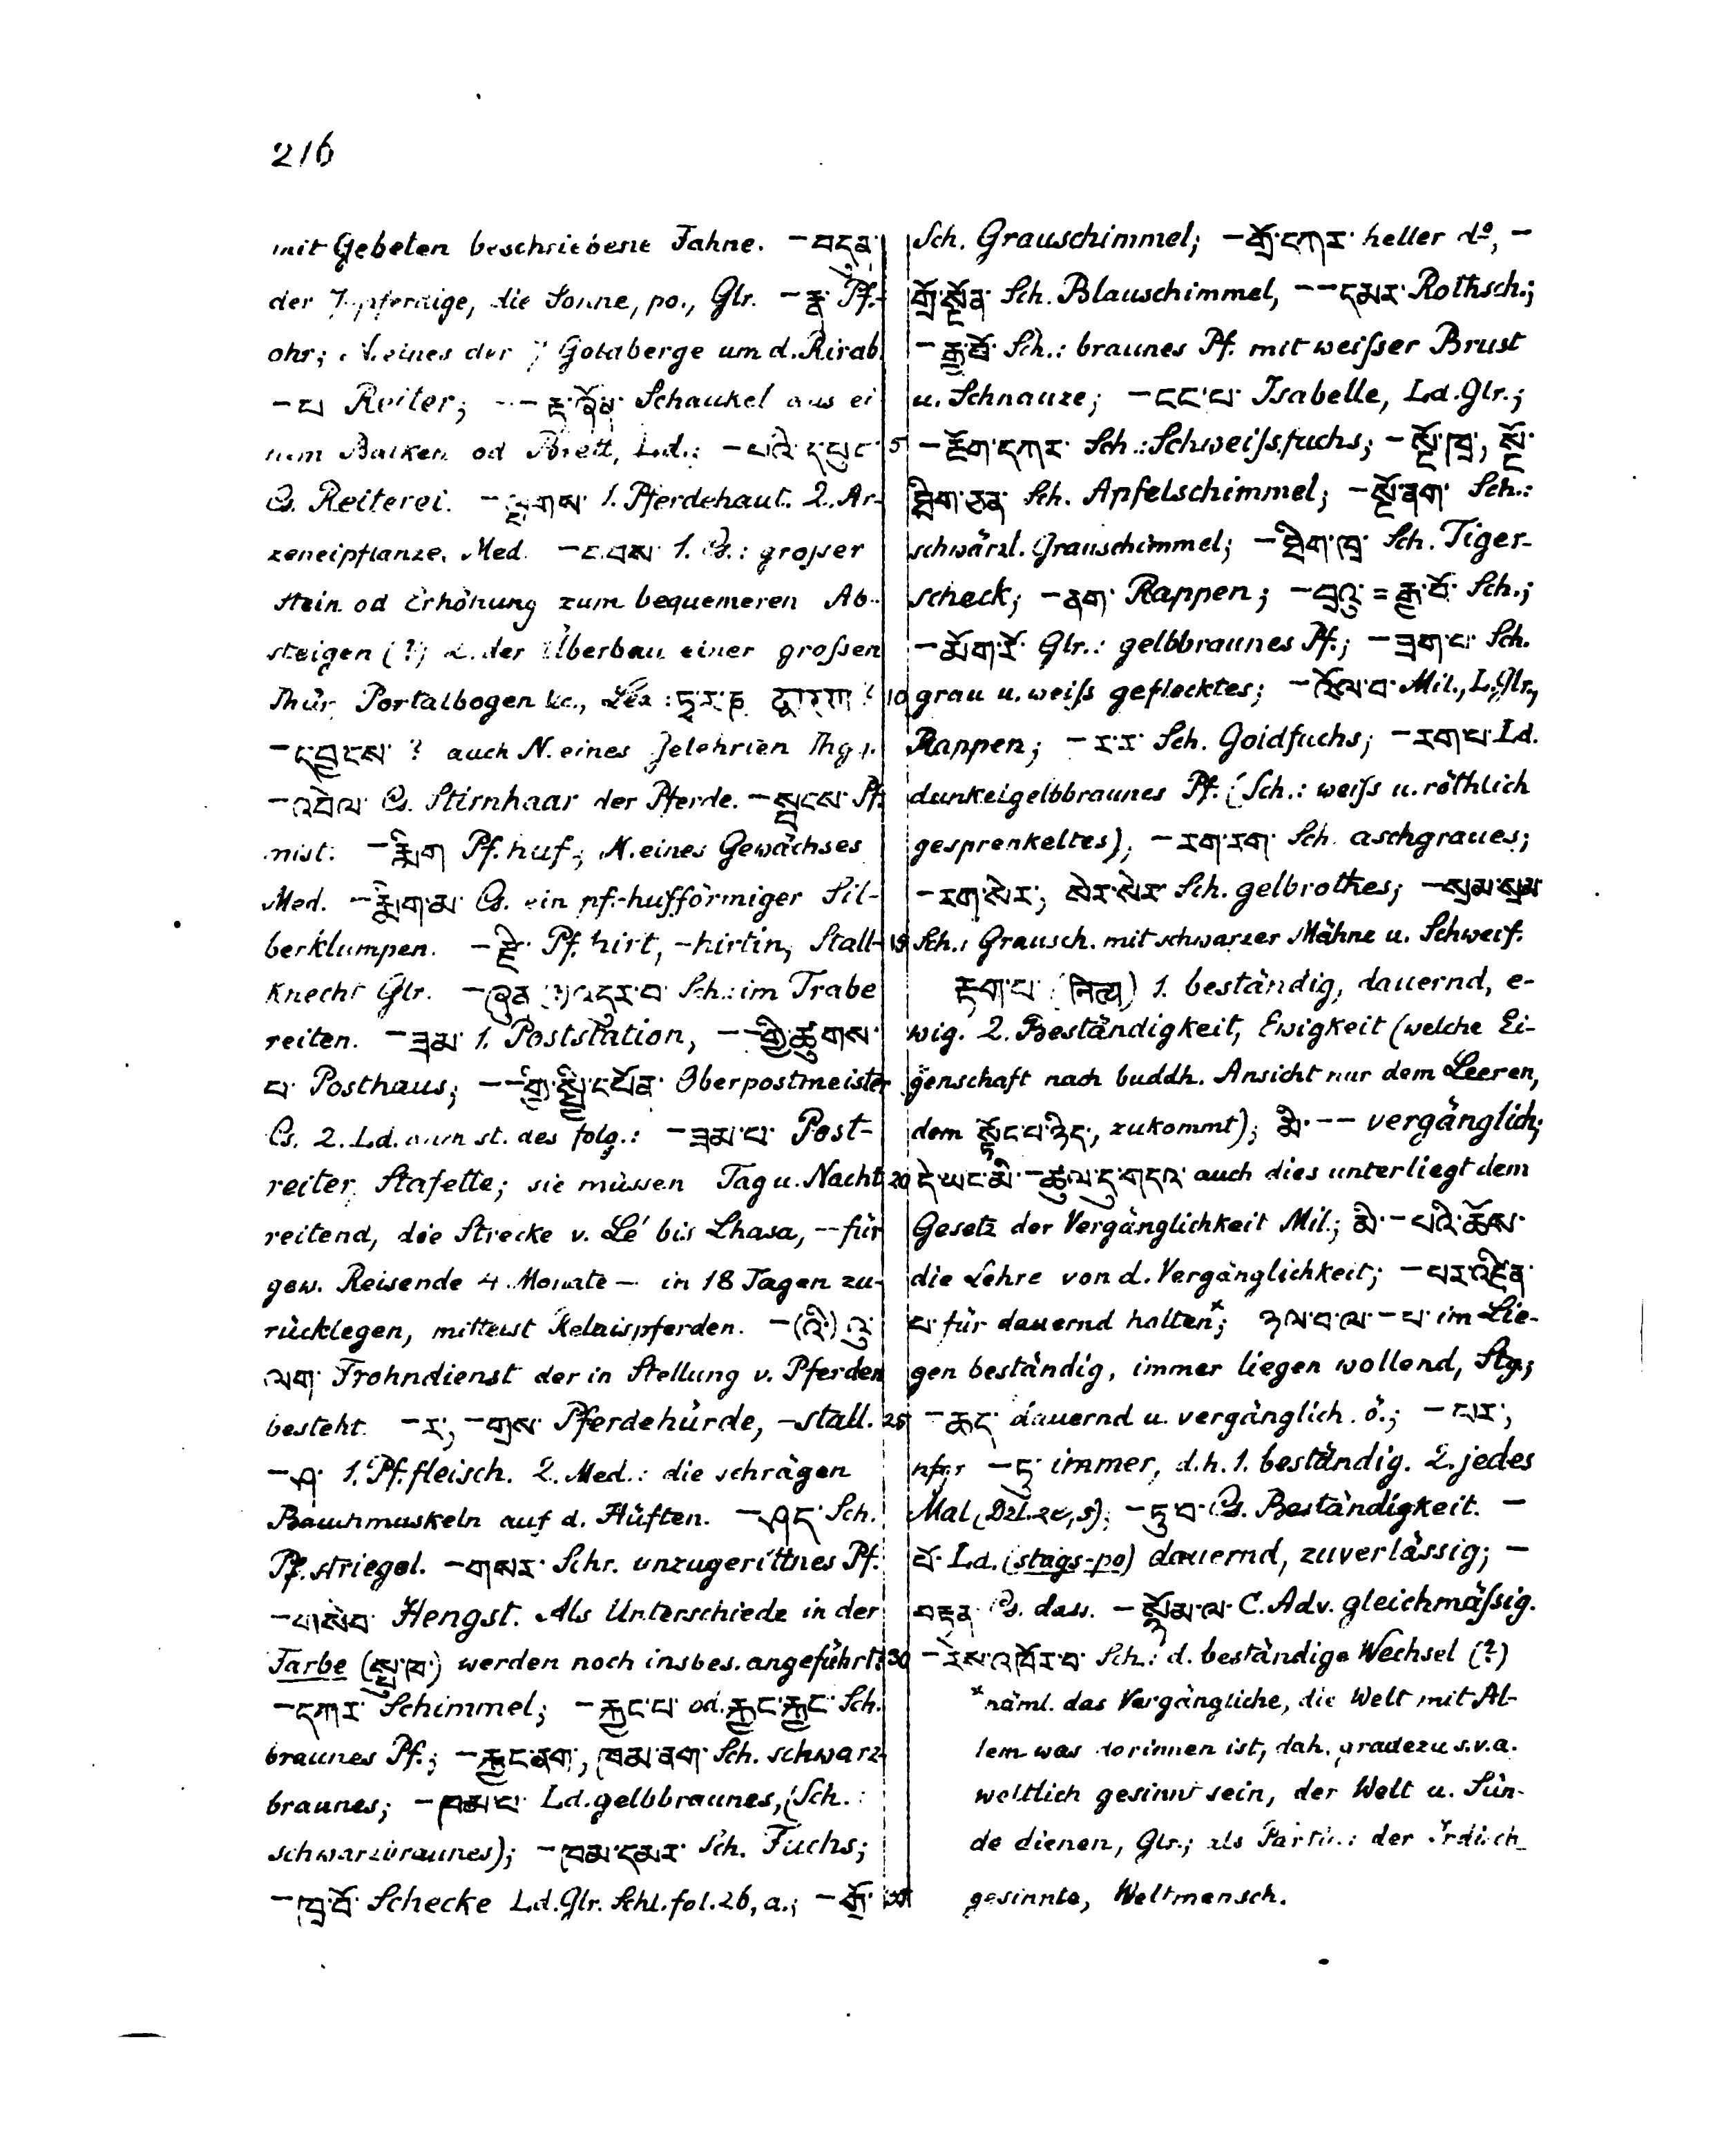 216
mit Gebeten beschriebene Fahne. –བདུན་
der 7-pferdige, die Sonne, po., Glr. –རྣ་ Pf.-
ohr; N. eines der 7 Goldberge um d. Rirab.
–པ Reiter; –– Schaukel aus ei
nem Balken od Brett, Ld.; –པའི་དཔུང་
Cs. Reiterei. –ལྤགས་ 1. Pferdehaut. 2. Ar-
zeneipflanze, Med. 1. Cs.: grosser
Stein od Erhöhung zum bequemeren Ab-
steigen (?) 2. der Überbau einer groſsen
Thür, Portalbogen &c., Lex:
–དབྱངས་ ? auch N. eines Gelehrten Thgr.
Cs. Stirnhaar der Pferde. –སྦངས་ Pf.
mist. –རྨིག Pf. huf; N. eines Gewächses
Med. –རྨིག་མ་ Cs. ein pf.-hufförmiger Sil-
berklumpen. –རྫི་ Pf. hirt, -hirtin, Stall-
Knecht Glr. Sch.: im Trabe
reiten. –ཟམ་ 1. Poststation, ––གྱི་ཚུགས་
པ་ Posthaus; ––གི་སྤྱི་དཔོན་ Oberpostmeister
Cs. 2. Ld. auch st. des folg.: –ཟམ་པ་ Post-
reiter, Stafette; sie müssen Tag u. Nacht
reitend, die Strecke v. Lé bis Lhasa, –– für
gew. Reisende 4 Monate – in 18 Tagen zu-
rücklegen, mittelst Relaispferden. –(འི་) འུ་
ལག་ Frohndienst der in Stellung v. Pferden
besteht. –ར་, Pferdehürde, –stall.
–ཤ་ 1. Pf. fleisch. 2. Med.: die schrägen
Bauchmuskeln auf d. Hüften. –ཤད་ Sch.
Pf. striegel. –གསར་ Schr. unzugerittnes Pf.
–གསེབ་ Hengst. Als Unterschiede in der
Farbe (སྤུ་ཁ་) werden noch insbes. angeführt:
–དཀར་ Schimmel; –རྐྱང་པ་ od. རྐྱང་རྐྱང་ Sch.
braunes Pf.; –རྐྱང་ནག་, ཁམ་ནག་ Sch. schwarz
braunes; –ཁམ་པ་ Ld. gelbbraunes, (Sch.:
schwarzbraunes); –ཁམ་དམར་ Sch. Fuchs;
–ཁྲ་བོ་ Schecke Ld. Glr. Schl. fol. 26, a.; –གྲོ་
Sch. Grauschimmel; –གྲོ་དཀར་ heller do, –
གྲོ་སྔོན་ Sch. Blauschimmel, ––དམར་ Rothsch.;
–རྒྱ་བོ་ Sch.: braunes Pf. mit weiſser Brust
u. Schnauze; –ངང་པ་ Isabelle, Ld. Glr.;
5 –ཇོག་དཀར་ Sch.: Schweiſsfuchs; –སྔོ་ཁྲ་, སྔོ་
ཐིག་ཅན་ Sch. Apfelschimmel; –སྔོ་ནག་ Sch.:
schwärzl. Grauschimmel; –ཐིག་ཁྲ་ Sch. Tiger-
scheck; –ནག་ Rappen; –བྲའུ་ = རྒྱ་བོ་ Sch.;
–མོག་རོ་ Glr.: gelbbraunes Pf.; –ཟག་པ་ Sch.
10 grau u. weiſs geflecktes; –རོལ་བ་ Mil., L., Glr.,
Rappen; –ར་ར་ Sch. Goldfuchs; –རག་པ་ Ld.
dunkelgelbbraunes Pf. (Sch.: weiſs u. röthlich
gesprenkeltes); –རག་རག་ Sch. aschgraues;
–རག་སེར་, སེར་སེར་ Sch. gelbrothes; –སྲམ་སྲམ་
15 Sch.: Grausch. mit schwarzer Mähne u. Schweif.
རྟག་པ་ (नित्य) 1. beständig, dauernd, e-
wig. 2. Beständigkeit, Ewigkeit (welche Ei-
genschaft nach buddh. Ansicht nur dem Leeren,
dem སྟོང་པ་ཉིད་, zukommt); མི་–– vergänglich;
20 དེ་ཡང་མི་–ཚུལ་དུ་གདའ་ auch dies unterliegt dem
Gesetz der Vergänglichkeit Mil.; མི་–པའི་ཆོས་
die Lehre von d. Vergänglichkeit; –པར་འཛིན་
པ་ für dauernd halten×; ཉལ་བ་ལ་–པ་ im Lie-
gen beständig, immer liegen wollend, Stg.;
25 –ཆད་ dauernd u. vergänglich. ö.; –པར་,
–ཏུ་ immer, d.h. 1. beständig. 2. jedes
Mal (Dzl. 2c, 5); –ཏུ་བ་ Cs. Beständigkeit. –
པོ་ Ld. (stags-po) dauernd, zuverlässig; –
བརྟན་ Cs. dass. –སྙོམ་ལ་ C. Adv. gleichmäſsig.
30 –རེས་འཁོར་བ་ Sch.: d. beständige Wechsel (?)
×näml. das Vergängliche, die Welt mit Al-
lem was dorinnen ist, dah. gradezu s.v.a.
weltlich gesinnt sein, der Welt u. Sün-
de dienen, Glr.; als Partic.: der Irdisch-
gesinnte, Weltmensch.